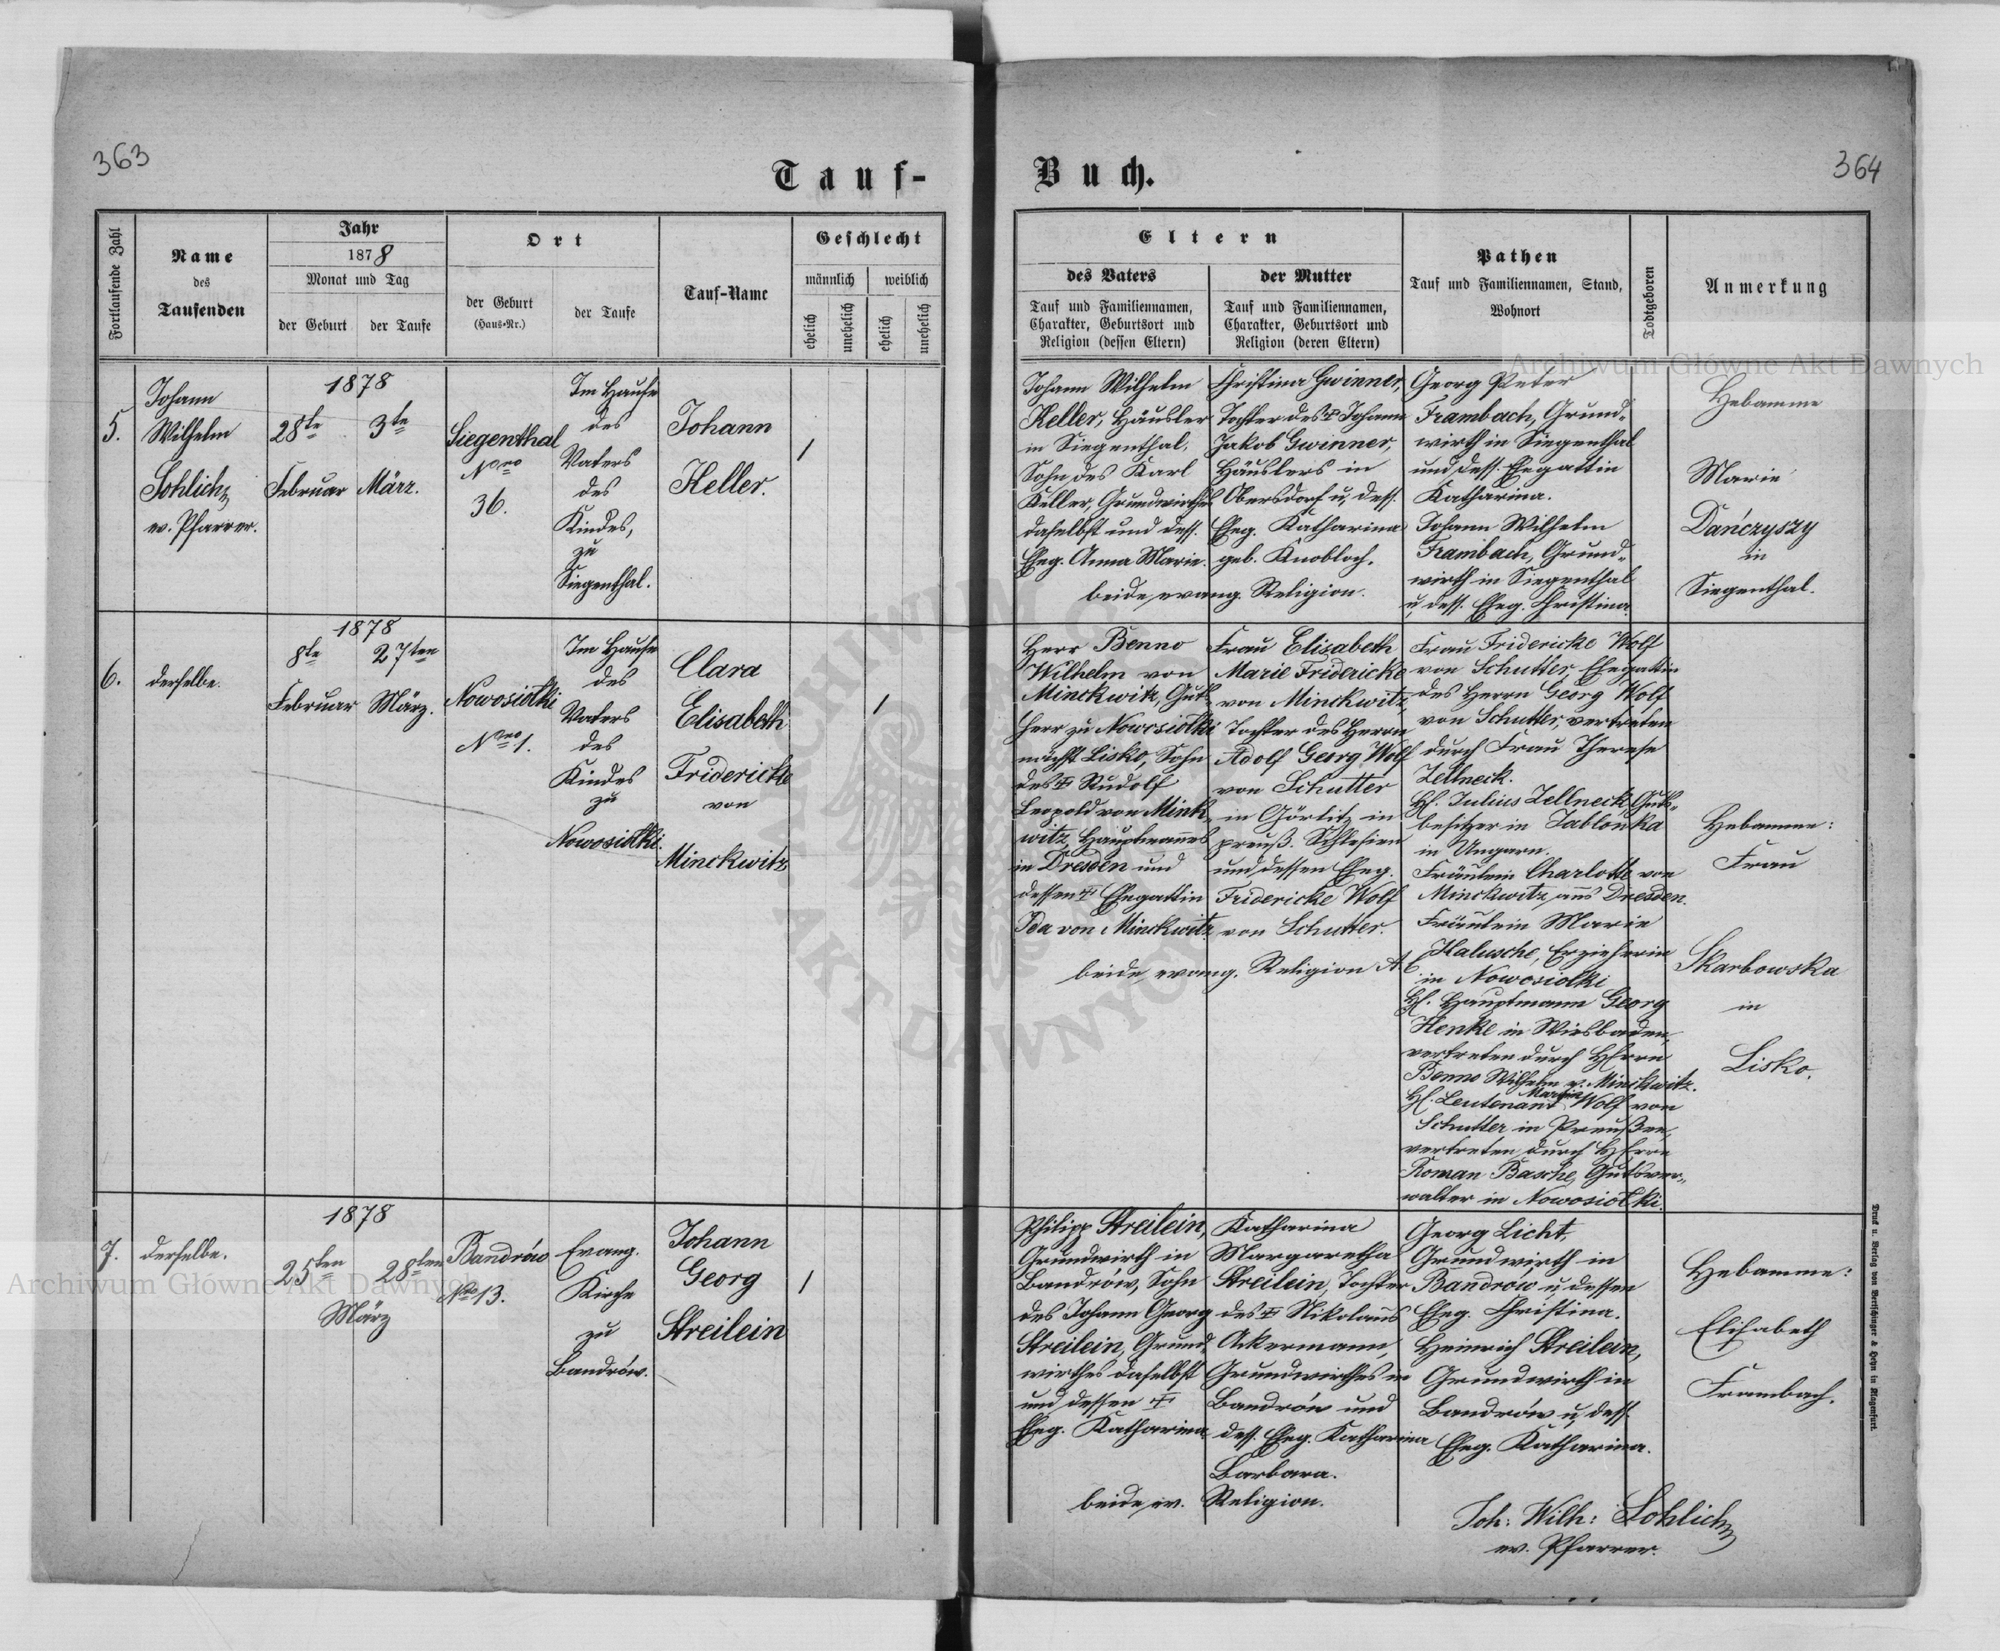 363
Tauf-
Fortlaufende Zahl
Name
des
Taufenden
Jahr
1878
Monat und Tag
der Geburt
der Taufe
Ort
der Geburt
(Haus-Nr.)
der Taufe
Tauf-Name
Geschlecht
männlich
weiblich
ehelich
unehelich
ehelich
unehelich
5.
Johann
Wilhelm
ev. Pfarrer.
1878
28te
Februar
3te
März.
Siegenthal
Nro
36.
Im Hause
des
Vaters
des
Kindes,
zu
Siegenthal.
Johann
Keller.
1
6.
derselbe.
1878
8te
Februar
27ten
März.
Nowosiołki
Nro 1.
Im Hause
des
Vaters
des
Kindes
zu
Nowosiołki.
Clara
Elisabeth
Fridericke
von
Minckwitz
1
7.
derselbe.
1878
25ten
28ten
März
Bandrów
Nro 13.
Evang.
Kirche
zu
Bandrów.
Johann
Georg
Streilein
1
Buch.
364
Eltern
des Vaters
Tauf und Familiennamen,
Charakter, Geburtsort und
Religion (dessen Eltern)
der Mutter
Tauf und Familiennamen,
Charakter, Geburtsort und
Religion (deren Eltern)
Pathen
Tauf und Familiennamen, Stand,
Wohnort
Todtgeboren
Anmerkung
Johann Wilhelm
Keller, Häusler
in Siegenthal,
Sohn des Karl
Keller, Grundwirthes
daselbst und dess.
Eheg. Anna Marie.
Christina Gwinner,
Tochter des † Johann
Jakob Gwinner,
Häuslers in
Obersdorf u, dess.
Eheg. Katharina
geb. Knobloch.
beide evang. Religion.
Georg Peter
Frambach, Grund-
wirth in Siegenthal
und dess. Ehgattin
Katharina.
Johann Wilhelm
Frambach, Grund-
wirth in Siegenthal
u, dess. Eheg. Christina.
Hebamme
Marie
Dańczyszy
in
Siegenthal.
Herr Benno
Wilhelm von
Minckwitz, Guts-
herr zu Nowosiołki
nächst Lisko, Sohn
des † Rudolf
Leopold von Mink-
witz, Hauptmannes
in Dresden und
dessen † Ehegattin
Ida von Minckwitz.
Frau Elisabeth
Marie Fridericke
von Minckwitz,
Tochter des Herrn
Adolf Georg Wolf
von Schutter
in Görlitz in
preuß. Schlesien
und dessen Eheg.
Fridericke Wolf
von Schutter.
beide evang. Religion A. C.
Frau Fridericke Wolf
von Schutter, Ehegattin
des Herrn Georg Wolf
von Schutter, vertreten
durch Frau Therese
Zellneck.
H. Julius Zellneck, Guts-
besitzer in Jablonka
in Ungarn.
Fräulein Charlotte von
Minckwitz aus Dresden.
Fräulein Marie
Halusche, Erzieherin
in Nowosiolki
H. Hauptmann Georg
Henke in Wiesbaden,
vertreten durch Herrn
Benno Wilhelm v. Minckwitz.
H. Leutenant Martin Wolf von
Schutter in Preußen,
vertreten durch Herrn
Roman Basche, Gutsver-
walter in Nowosiołki.
Hebamme:
Frau
Skarbowska
in
Lisko.
Philipp Streilein,
Grundwirth in
Bandrów, Sohn
des Johann Georg
Streilein, Grund-
wirthes daselbst
und dessen †
Eheg. Katharina
Katharina
Margaretha
Streilein, Tochter
des † Nikolaus
Ackermann,
Grundwirthes in
Bandrów und
dess. Eheg. Katharina
Barbara.
beide ev. Religion.
Georg Licht,
Grundwirth in
Bandrów u, dessen
Eheg. Christina.
Heinrich Streilein,
Grundwirth in
Bandrów u, dess.
Eheg. Katharina.
Hebamme:
Elisabeth
Frambach.
Joh: Wilh:
ev. Pfarrer.
Druck u. Verlag von Bertschinger & Heyn in Klagenfurt.
Archiwum Główne Akt Dawnych
Archiwum Główne Akt Dawnych